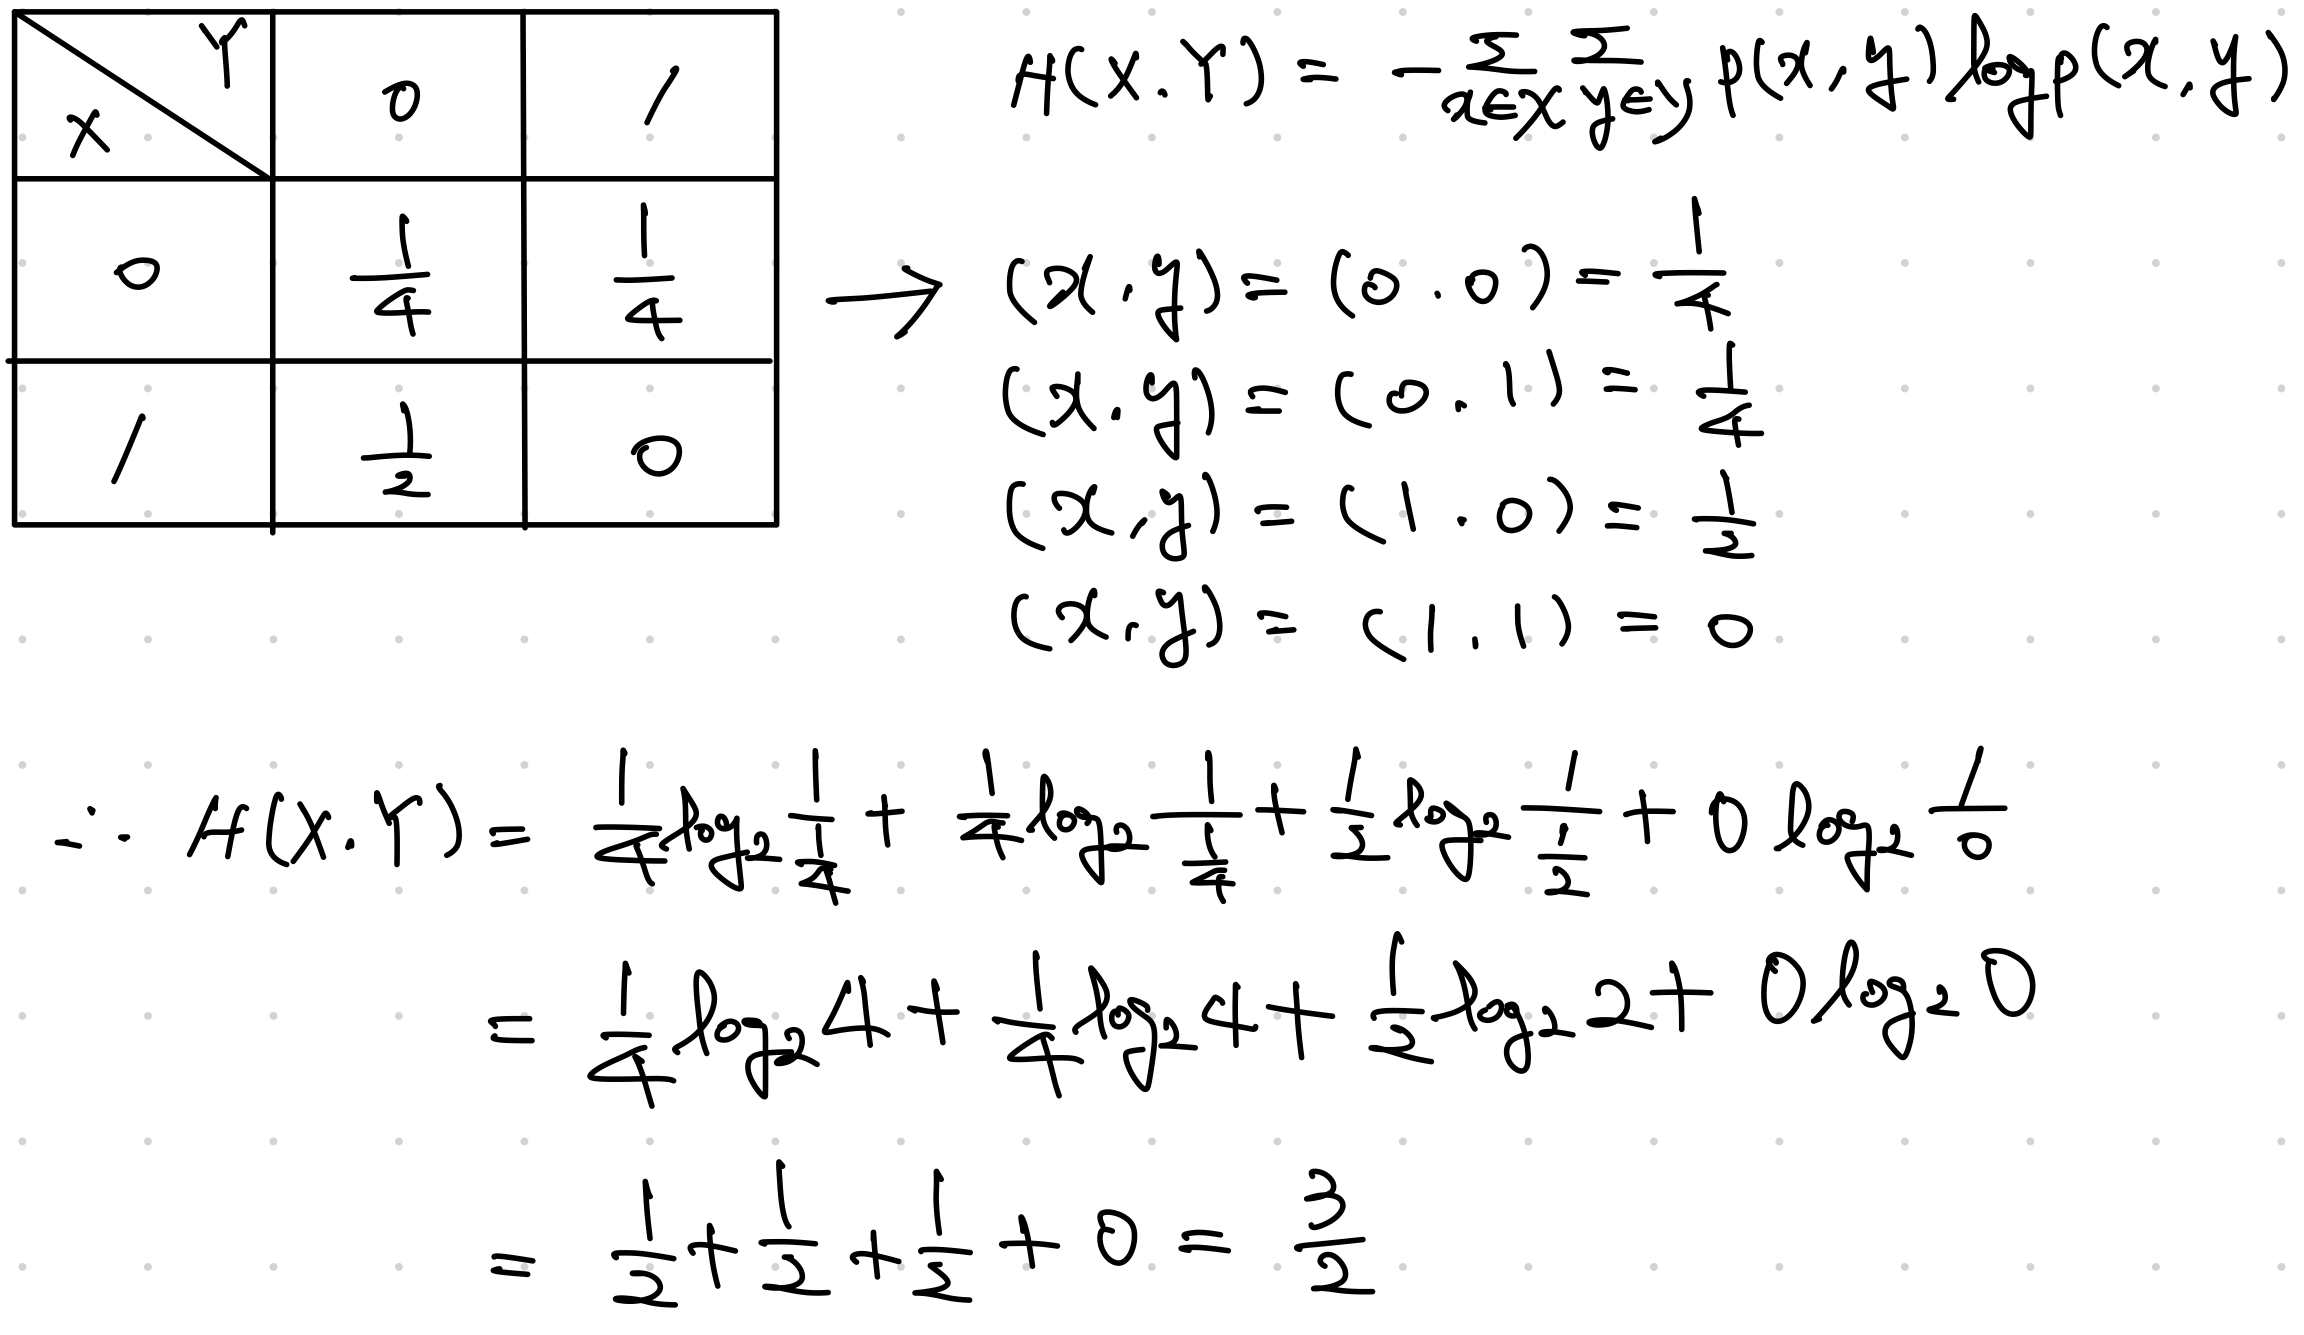 Y 0 1
X
0 1/4 1/4
1 1/2 0
H(X.Y) = -Σ_{x∈X} Σ_{y∈Y} p(x,y) log p(x,y)
→ (x.y) = (0.0) = 1/4
(x.y) = (0.1) = 1/4
(x,y) = (1.0) = 1/2
(x.y) = (1.1) = 0
∴ H(X.Y) = 1/4 log₂ 1/(1/4) + 1/4 log₂ 1/(1/4) + 1/2 log₂ 1/(1/2) + 0 log₂ 1/0
= 1/4 log₂ 4 + 1/4 log₂ 4 + 1/2 log₂ 2 + 0 log₂ 0
= 1/2 + 1/2 + 1/2 + 0 = 3/2